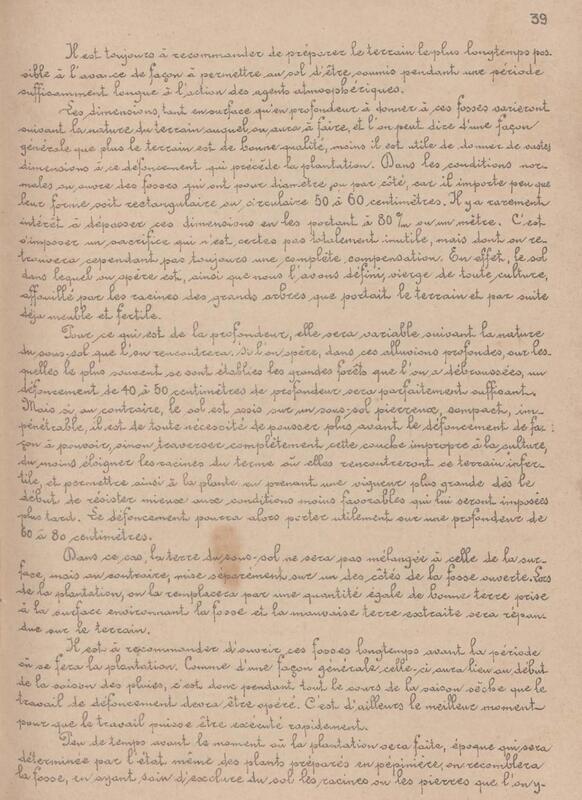 39
Il est toujours à recommander de préparer le terrain le plus longtemps pos-
sible à l'avance de façon à permettre au sol d'être soumis pendant une période
suffisamment longue à l'action des agents atmosphériques.
Les dimensions, tant en surface qu'en profondeur à donner à ces fosses varieront
suivant la nature du terrain auquel on aura à faire, et l'on peut dire d'une façon
générale que plus le terrain est de bonne qualité, moins il est utile de donner de vastes
dimensions à ce défoncement qui précède la plantation. Dans les conditions nor-
males on ouvre des fosses qui ont pour diamètre, ou par côté, car il importe peu que
leur forme soit rectangulaire ou circulaire 50 à 60 centimètres. Il y a rarement
intérêt à dépasser ces dimensions en les portant à 80 c/m ou un mètre. C'est
s'imposer un sacrifice qui n'est certes pas totalement inutile, mais dont on re-
trouvera cependant pas toujours une complète compensation. En effet, le sol
dans lequel on opère est, ainsi que nous l'avons défini, vierge de toute culture,
affouillé par les racines des grands arbres que portait le terrain et par suite
déjà meuble et fertile.
Pour ce qui est de la profondeur, elle sera variable suivant la nature
du sous-sol que l'on rencontrera. Si l'on opère, dans ces alluvions profondes, sur les-
quelles le plus souvent se sont établies les grandes forêts que l'on a débroussées, un
défoncement de 40 à 50 centimètres de profondeur sera parfaitement suffisant.
Mais si au contraire, le sol est assis sur un sous-sol pierreux, compact, im-
pénétrable, il est de toute nécessité de pousser plus avant le défoncement de fa-
çon à pouvoir, sinon traverser complètement cette couche impropre à la culture,
du moins éloigner les racines du terme où elles rencontreront ce terrain infer-
tile, et permettre ainsi à la plante en prenant une vigueur plus grande dès le
début de résister mieux aux conditions moins favorables qui lui seront imposées
plus tard. Le défoncement pourra alors porter utilement sur une profondeur de
60 à 80 centimètres.
Dans ce cas, la terre du sous-sol ne sera pas mélangée à celle de la sur-
face, mais au contraire, mise séparément sur un des côtés de la fosse ouverte. Lors
de la plantation, on la remplacera par une quantité égale de bonne terre prise
à la surface environnant la fosse et la mauvaise terre extraite sera répan-
due sur le terrain.
Il est à recommander d'ouvrir ces fosses longtemps avant la période
où se fera la plantation. Comme d'une façon générale celle-ci aura lieu au début
de la saison des pluies, c'est donc pendant tout le cours de la saison sèche que le
travail de défoncement devra être opéré. C'est d'ailleurs le meilleur moment
pour que le travail puisse être exécuté rapidement.
Peu de temps avant le moment où la plantation sera faite, époque qui sera
déterminée par l'état même des plants préparés en pépinière, on recomblera
la fosse, en ayant soin d'exclure du sol les racines ou les pierres que l'on y-